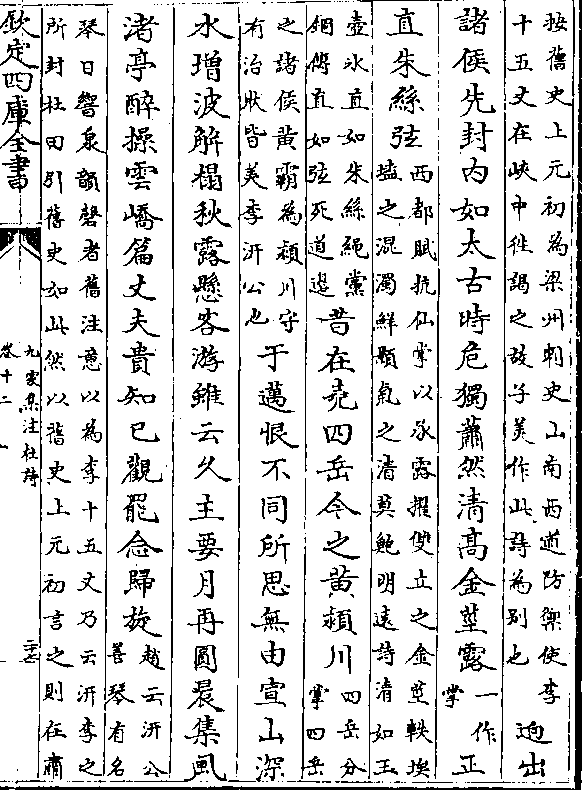 按舊史上元初為梁州刺史山南西道防禦使李
十五丈在峽中徃謁之故子美作此詩為別也
迥出
諸侯先封内如太古時危獨蕭然清髙金莖露一作掌正
直朱絲弦
西都賦抗仙掌以承露擢雙立之金莖軼埃
壒之混濁鮮顥氣之清英鮑明遠詩清如玉
壺氷直如朱絲繩黨
錮傳直如弦死道邉
昔在堯四岳今之黄潁川
四岳分
掌四岳
之諸侯黄霸為潁川守
有治狀皆美李汧公也
于邁恨不同所思無由宣山深
水增波解榻秋露懸客游雖云久主要月再圓晨集風
渚亭醉操雲嶠篇丈夫貴知已觀罷念歸旋
趙云汧公
善琴有名
琴曰響泉韻磬者舊注意以為李十五丈乃云汧李之
所封杜田引舊史如此然以舊史上元初言之則在肅
欽定四庫全書
九家集注杜詩
卷十二